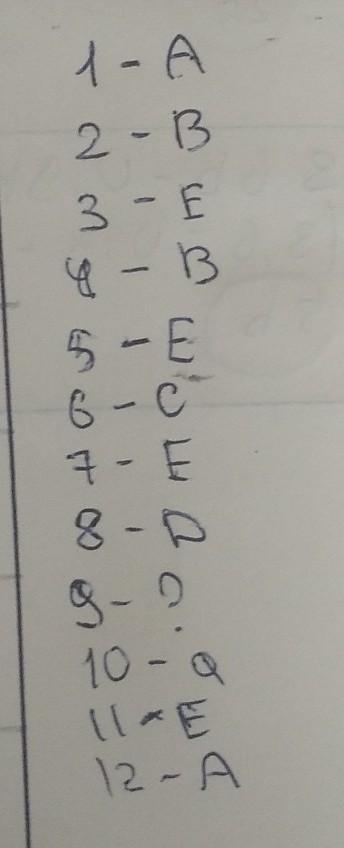 1 - A
2 - B
3 - E
4 - B
5 - E
6 - C
7 - E
8 - D
9 - ?
10 - Q
11 - E
12 - A